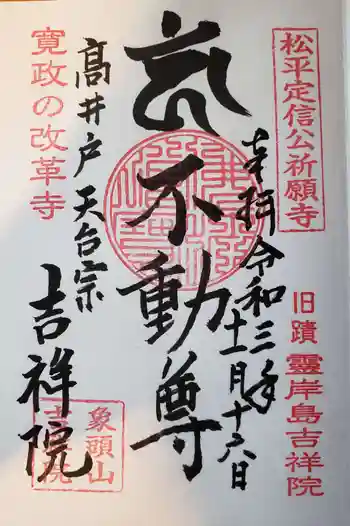 松平定信公祈願寺
旧蹟 靈岸島吉祥院
奉拝 令和三年
十一月十六日
不動尊
髙井戸 天台宗
吉祥院
寛政の改革寺
象頭山
吉祥院